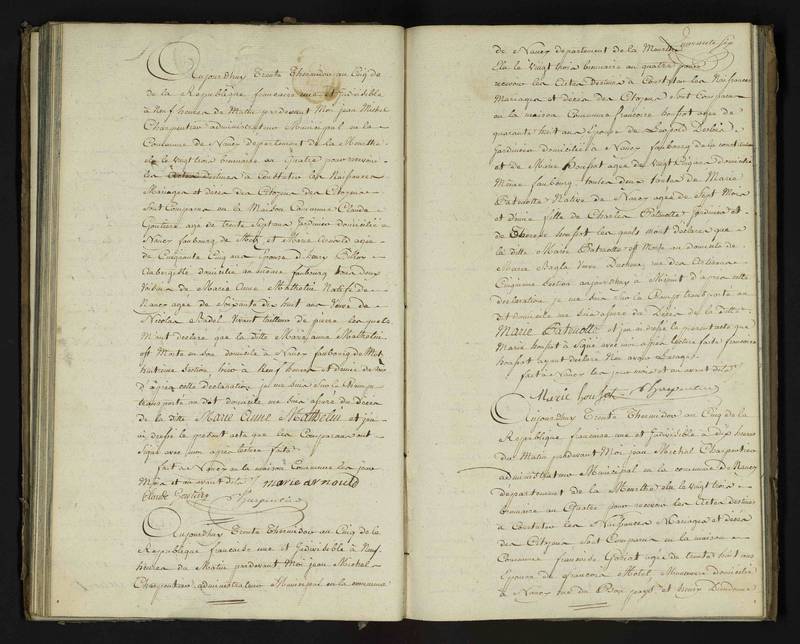 Aujourdhuy trente Thermidor an Cinq de
de la Republique francaise une et Indivisible
à Neuf heures du Matin pardevant Moi jean Michel
Charpentier administrateur Municipal en la
Commune de Nancy departement de la Meurthe
elu le vingt trois brumaire an Quatre pour recevoir
les Actes Destinés à Constater les Naissances
Mariages et décès des Citoyens des Citoyens
Sont Comparus en la Maison Commune Claude
Goutiere age de trente Sept ans Jardinier domicilié à
Nancy faubourg de Metz et Marie Arnould agée
de Cinquante Cinq ans Epouse d'henry
domicilié au même faubourg tous deux
Voisins de Marie Anne Mathelin Native de
Nancy agée de Soixante dix huit ans Veuve de
Nicolas Badel vivant tailleur de pierre les quels
M'ont declaré que la ditte Marie anne Mathelin
est Morte en Son domicile à Nancy faubourg de Metz
huitieme Section hier à Neuf heures et demie du Soir
D'après cette Declaration je me suis Sur le Champ
transporté au dit domicile me Suis assuré du Décès
de la ditte Marie Anne Mathelin et j'en
ai dressé le present acte que les Comparans ont
Signé avec moi après lecture faite
fait à Nancy en la maison Commune les jour
Mois et an avant dits marie arnould
Claude Goutiere Charpentier
Aujourdhuy Trente Thermidor an Cinq de la
Republique francaise une et Indivisible à Neuf
heures du Matin pardevant Moi jean Michel
Charpentier administrateur Municipal en la commune
quarante six
de Nancy departement de la Meurthe
Elu le vingt trois brumaire an quatre pour
recevoir les Actes Destinés à Constater les Naissances
Mariages et décès des Citoyens Sont Comparus
en la maison Commune francoise housfot agée de
quarante huit ans Epouse de Leopold
Jardinier domicilié à Nancy faubourg de la constitution
et de Marie housfot agée de vingt ans Domiciliée
Même faubourg toutes deux tantes de Marie
Patruotte Native de Nancy agée de Sept Mois
et demie fille de Charles Patruotte Jardinier et
de Therese housfot les quels mont declaré que
la ditte Marie Patruotte est Morte au domicile de
Marie Bagla Veuve Duchene rue des
Cinquieme Section aujourdhuy à Minuit d'après cette
declaration je me suis Sur le Champ transporté au
dit domicile me Suis assuré du Décès de la ditte
Marie Patruotte et j'en ai dressé le present acte que
Marie housfot à Signé avec moi après lecture faite francoise
housfot ayant declaré Non avoir l'usage
fait à Nancy les jour mois et an avant dits
Marie housfot Charpentier
Aujourdhuy Trente Thermidor an Cinq de la
Republique francaise une et Indivisible à dix heures
du Matin pardevant Moi jean Michel Charpentier
administrateur Municipal en la commune de Nancy
departement de la Meurthe elu le vingt trois
brumaire an Quatre pour recevoir les Actes Destinés
à Constater les Naissances Mariages et décès
des Citoyens Sont Comparus en la maison
Commune francoise agée de trente huit ans
Epouse de francois Motel, domicilié
à Nancy rue du Bon pays et henry